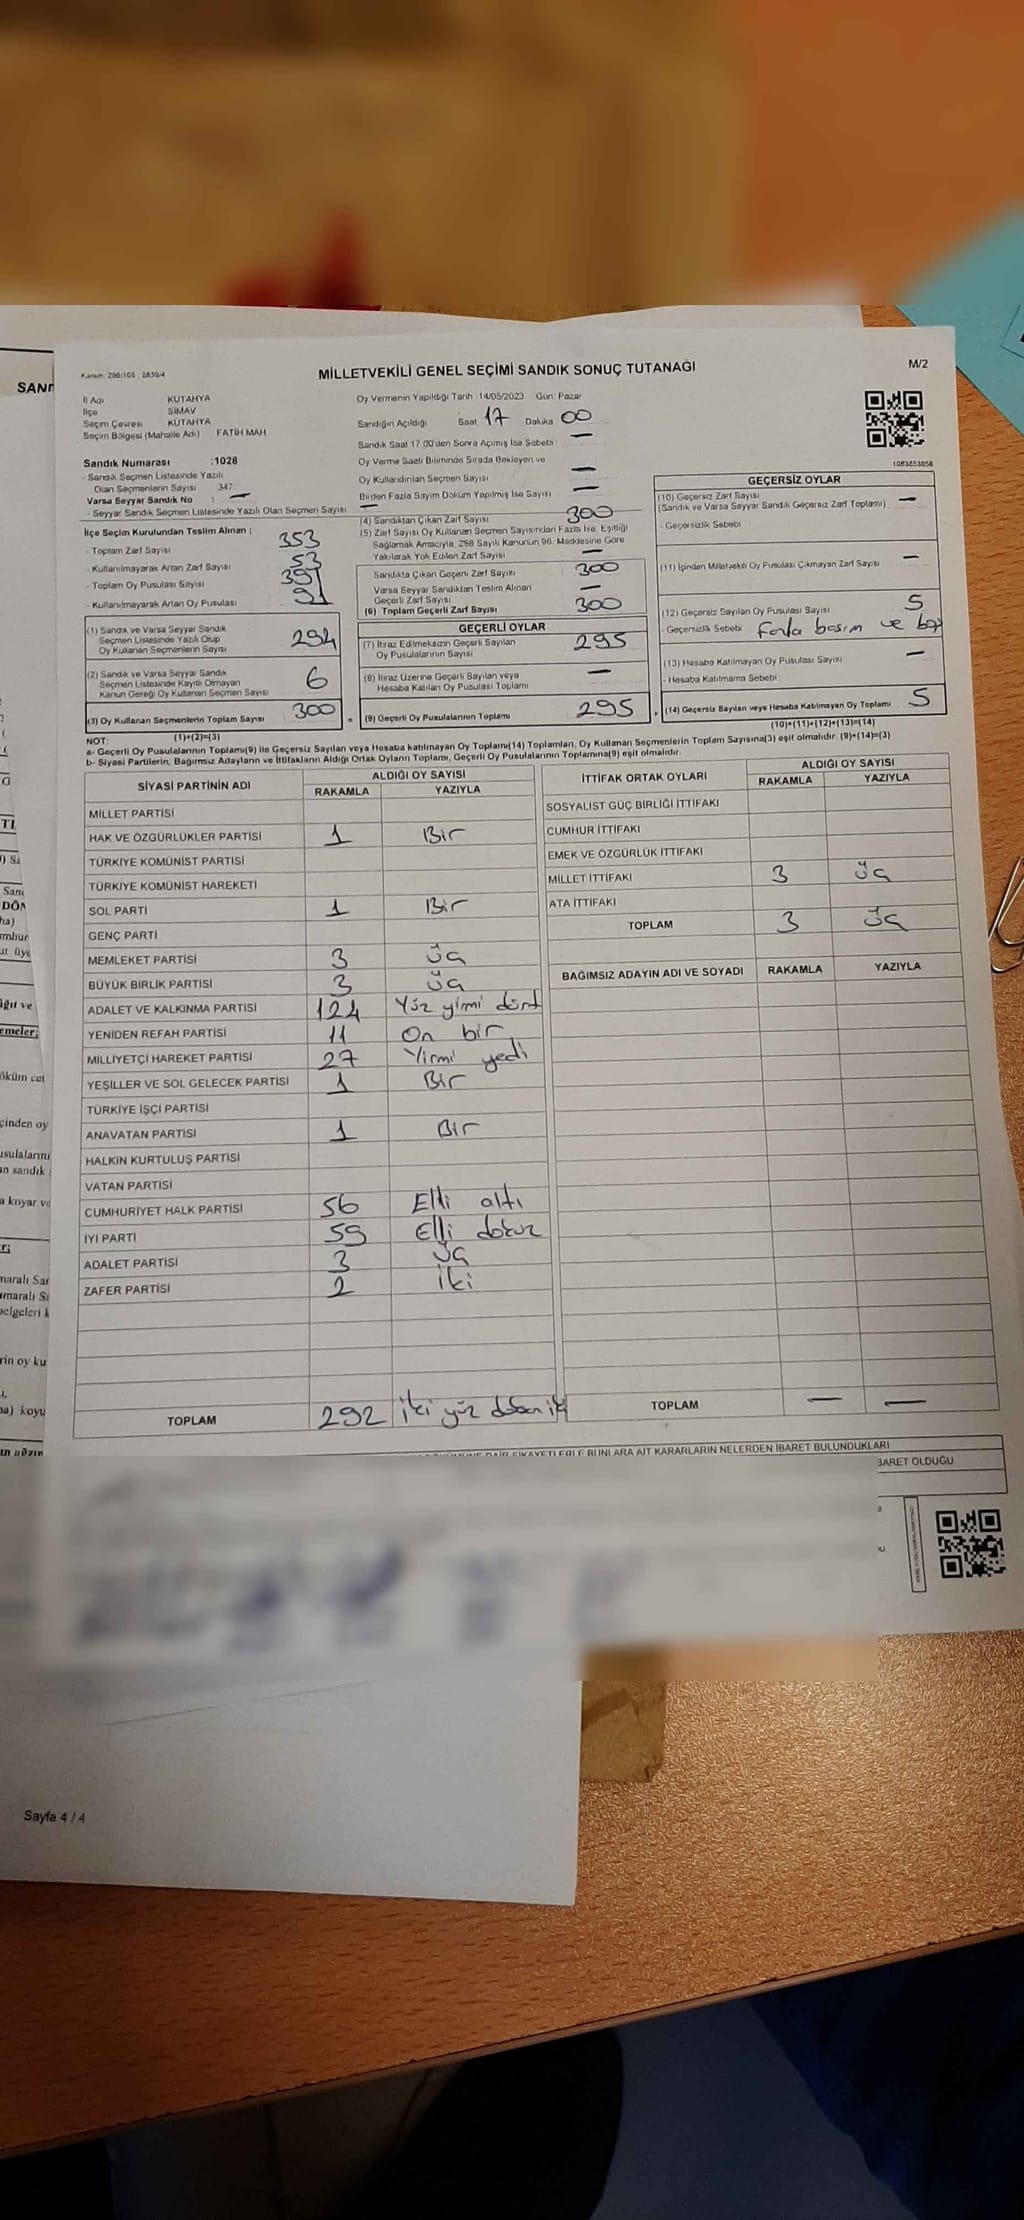 Kanun: 298/105 , 2839/4
MİLLETVEKİLİ GENEL SEÇİMİ SANDIK SONUÇ TUTANAĞI
M/2
İl Adı KÜTAHYA
İlçe SİMAV
Seçim Çevresi KÜTAHYA
Seçim Bölgesi (Mahalle Adı) FATİH MAH
Sandık Numarası :1028
- Sandık Seçmen Listesinde Yazılı
Olan Seçmenlerin Sayısı 347
Varsa Seyyar Sandık No : —
- Seyyar Sandık Seçmen Listesinde Yazılı Olan Seçmen Sayısı —
İlçe Seçim Kurulundan Teslim Alınan ;
- Toplam Zarf Sayısı 353
- Kullanılmayarak Artan Zarf Sayısı 53
- Toplam Oy Pusulası Sayısı 391
- Kullanılmayarak Artan Oy Pusulası 91
(1) Sandık ve Varsa Seyyar Sandık
Seçmen Listesinde Yazılı Olup
Oy Kullanan Seçmenlerin Sayısı 294
(2) Sandık ve Varsa Seyyar Sandık
Seçmen Listesinde Kayıtlı Olmayan
Kanun Gereği Oy Kullanan Seçmen Sayısı 6
(3) Oy Kullanan Seçmenlerin Toplam Sayısı 300
(1)+(2)=(3)
Oy Vermenin Yapıldığı Tarih :14/05/2023 Gün: Pazar
Sandığın Açıldığı Saat: 17 Dakika 00
Sandık Saat 17.00'den Sonra Açılmış İse Sebebi —
Oy Verme Saati Bitiminde Sırada Bekleyen ve
Oy Kullandırılan Seçmen Sayısı —
Birden Fazla Sayım Döküm Yapılmış İse Sayısı —
(4) Sandıktan Çıkan Zarf Sayısı 300
(5) Zarf Sayısı Oy Kullanan Seçmen Sayısından Fazla İse, Eşitliği
Sağlamak Amacıyla, 298 Sayılı Kanunun 98. Maddesine Göre
Yakılarak Yok Edilen Zarf Sayısı —
Sandıkta Çıkan Geçerli Zarf Sayısı 300
Varsa Seyyar Sandıktan Teslim Alınan
Geçerli Zarf Sayısı —
(6) Toplam Geçerli Zarf Sayısı 300
GEÇERLİ OYLAR
(7) İtiraz Edilmeksizin Geçerli Sayılan
Oy Pusulalarının Sayısı 295
(8) İtiraz Üzerine Geçerli Sayılan veya
Hesaba Katılan Oy Pusulası Toplamı —
= (9) Geçerli Oy Pusulalarının Toplamı 295
1083853858
GEÇERSİZ OYLAR
(10) Geçersiz Zarf Sayısı
(Sandık ve Varsa Seyyar Sandık Geçersiz Zarf Toplamı) —
- Geçersizlik Sebebi :
(11) İçinden Milletvekili Oy Pusulası Çıkmayan Zarf Sayısı —
(12) Geçersiz Sayılan Oy Pusulası Sayısı 5
- Geçersizlik Sebebi Fazla basım ve boş
(13) Hesaba Katılmayan Oy Pusulası Sayısı —
- Hesaba Katılmama Sebebi :
+ (14) Geçersiz Sayılan veya Hesaba Katılmayan Oy Toplamı 5
(10)+(11)+(12)+(13)=(14)
NOT:
a- Geçerli Oy Pusulalarının Toplamı(9) ile Geçersiz Sayılan veya Hesaba katılmayan Oy Toplamı(14) Toplamları, Oy Kullanan Seçmenlerin Toplam Sayısına(3) eşit olmalıdır. (9)+(14)=(3)
b- Siyasi Partilerin, Bağımsız Adayların ve İttifakların Aldığı Ortak Oyların Toplamı, Geçerli Oy Pusulalarının Toplamına(9) eşit olmalıdır.
SİYASİ PARTİNİN ADI ALDIĞI OY SAYISI
RAKAMLA YAZIYLA
MİLLET PARTİSİ
HAK VE ÖZGÜRLÜKLER PARTİSİ 1 Bir
TÜRKİYE KOMÜNİST PARTİSİ
TÜRKİYE KOMÜNİST HAREKETİ
SOL PARTİ 1 Bir
GENÇ PARTİ
MEMLEKET PARTİSİ 3 Üç
BÜYÜK BİRLİK PARTİSİ 3 Üç
ADALET VE KALKINMA PARTİSİ 124 Yüz yirmi dört
YENİDEN REFAH PARTİSİ 11 On bir
MİLLİYETÇİ HAREKET PARTİSİ 27 Yirmi yedi
YEŞİLLER VE SOL GELECEK PARTİSİ 1 Bir
TÜRKİYE İŞÇİ PARTİSİ
ANAVATAN PARTİSİ 1 Bir
HALKIN KURTULUŞ PARTİSİ
VATAN PARTİSİ
CUMHURİYET HALK PARTİSİ 56 Elli altı
İYİ PARTİ 59 Elli dokuz
ADALET PARTİSİ 3 Üç
ZAFER PARTİSİ 2 İki
TOPLAM 292 İki yüz doksan iki
İTTİFAK ORTAK OYLARI ALDIĞI OY SAYISI
RAKAMLA YAZIYLA
SOSYALİST GÜÇ BİRLİĞİ İTTİFAKI
CUMHUR İTTİFAKI
EMEK VE ÖZGÜRLÜK İTTİFAKI
MİLLET İTTİFAKI 3 Üç
ATA İTTİFAKI
TOPLAM 3 Üç
BAĞIMSIZ ADAYIN ADI VE SOYADI RAKAMLA YAZIYLA
TOPLAM — —
ŞİKAYETLERLE BUNLARA AİT KARARLARIN NELERDEN İBARET BULUNDUKLARI
BARET OLDUĞU
Sayfa 4 / 4